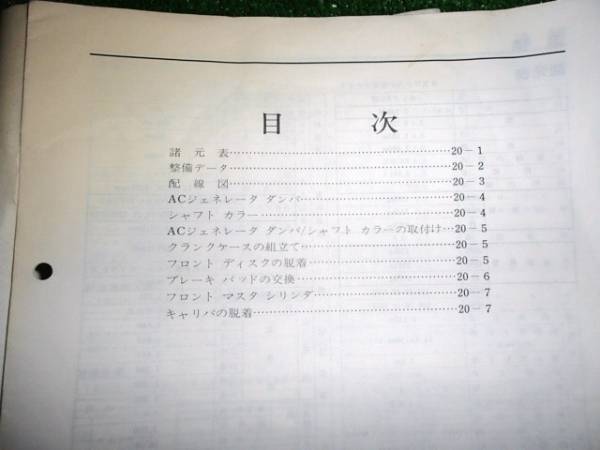 目 次
諸 元 表…………………………………………20－1
整備データ…………………………………………20－2
配 線 図…………………………………………20－3
ACジェネレータ ダンパ…………………………20－4
シャフト カラー……………………………………20－4
ACジェネレータ ダンパ/シャフト カラーの取付け…20－5
クランクケースの組立て…………………………20－5
フロント ディスクの脱着…………………………20－5
ブレーキ パッドの交換……………………………20－6
フロント マスタ シリンダ…………………………20－7
キャリパの脱着……………………………………20－7